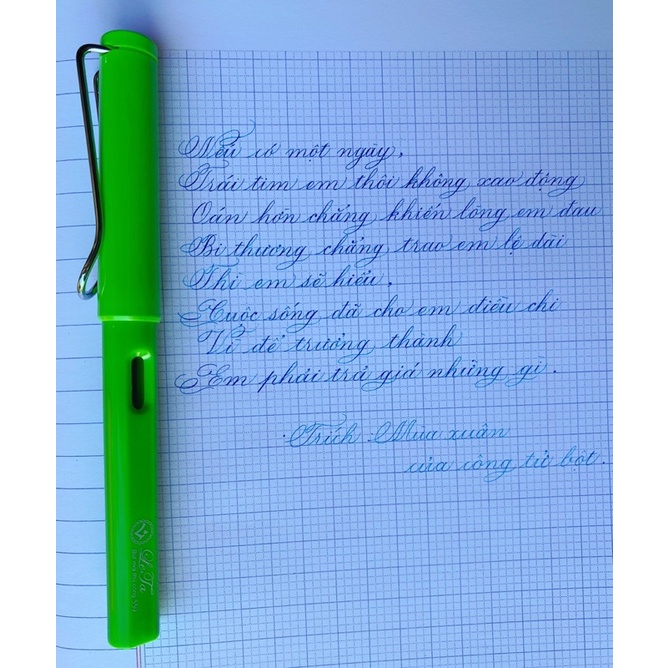 Nếu có một ngày,
Trái tim em thôi không xao động
Oán hờn chẳng khiến lòng em đau
Bi thương chẳng trao em lệ dài
Thì em sẽ hiểu,
Cuộc sống đã cho em điều chi
Vì để trưởng thành
Em phải trả giá những gì.
Trích Mùa xuân
của công tử bột.